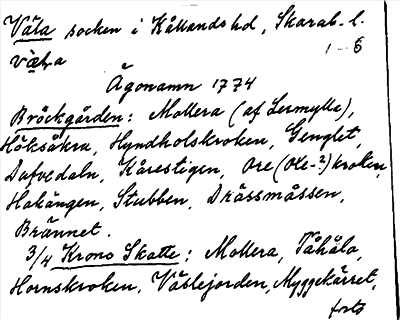 Väla socken i Kållands hd, Skarab. l.
väla 1-6
Ägonamn 1774
Bröckgården: Mollera (af Lermylla),
Höksåkra, Hyndholskroken, Genglet,
Dafvedaln, Kårestigen, Ore (Oxe-?) kroken,
Hakängen, Stubben, Drässmåssen,
Brännet.
3/4 Krono Skatte: Mollera, Tåhåla,
Hornskroken, Väslejorden, Myggekärret,
forts